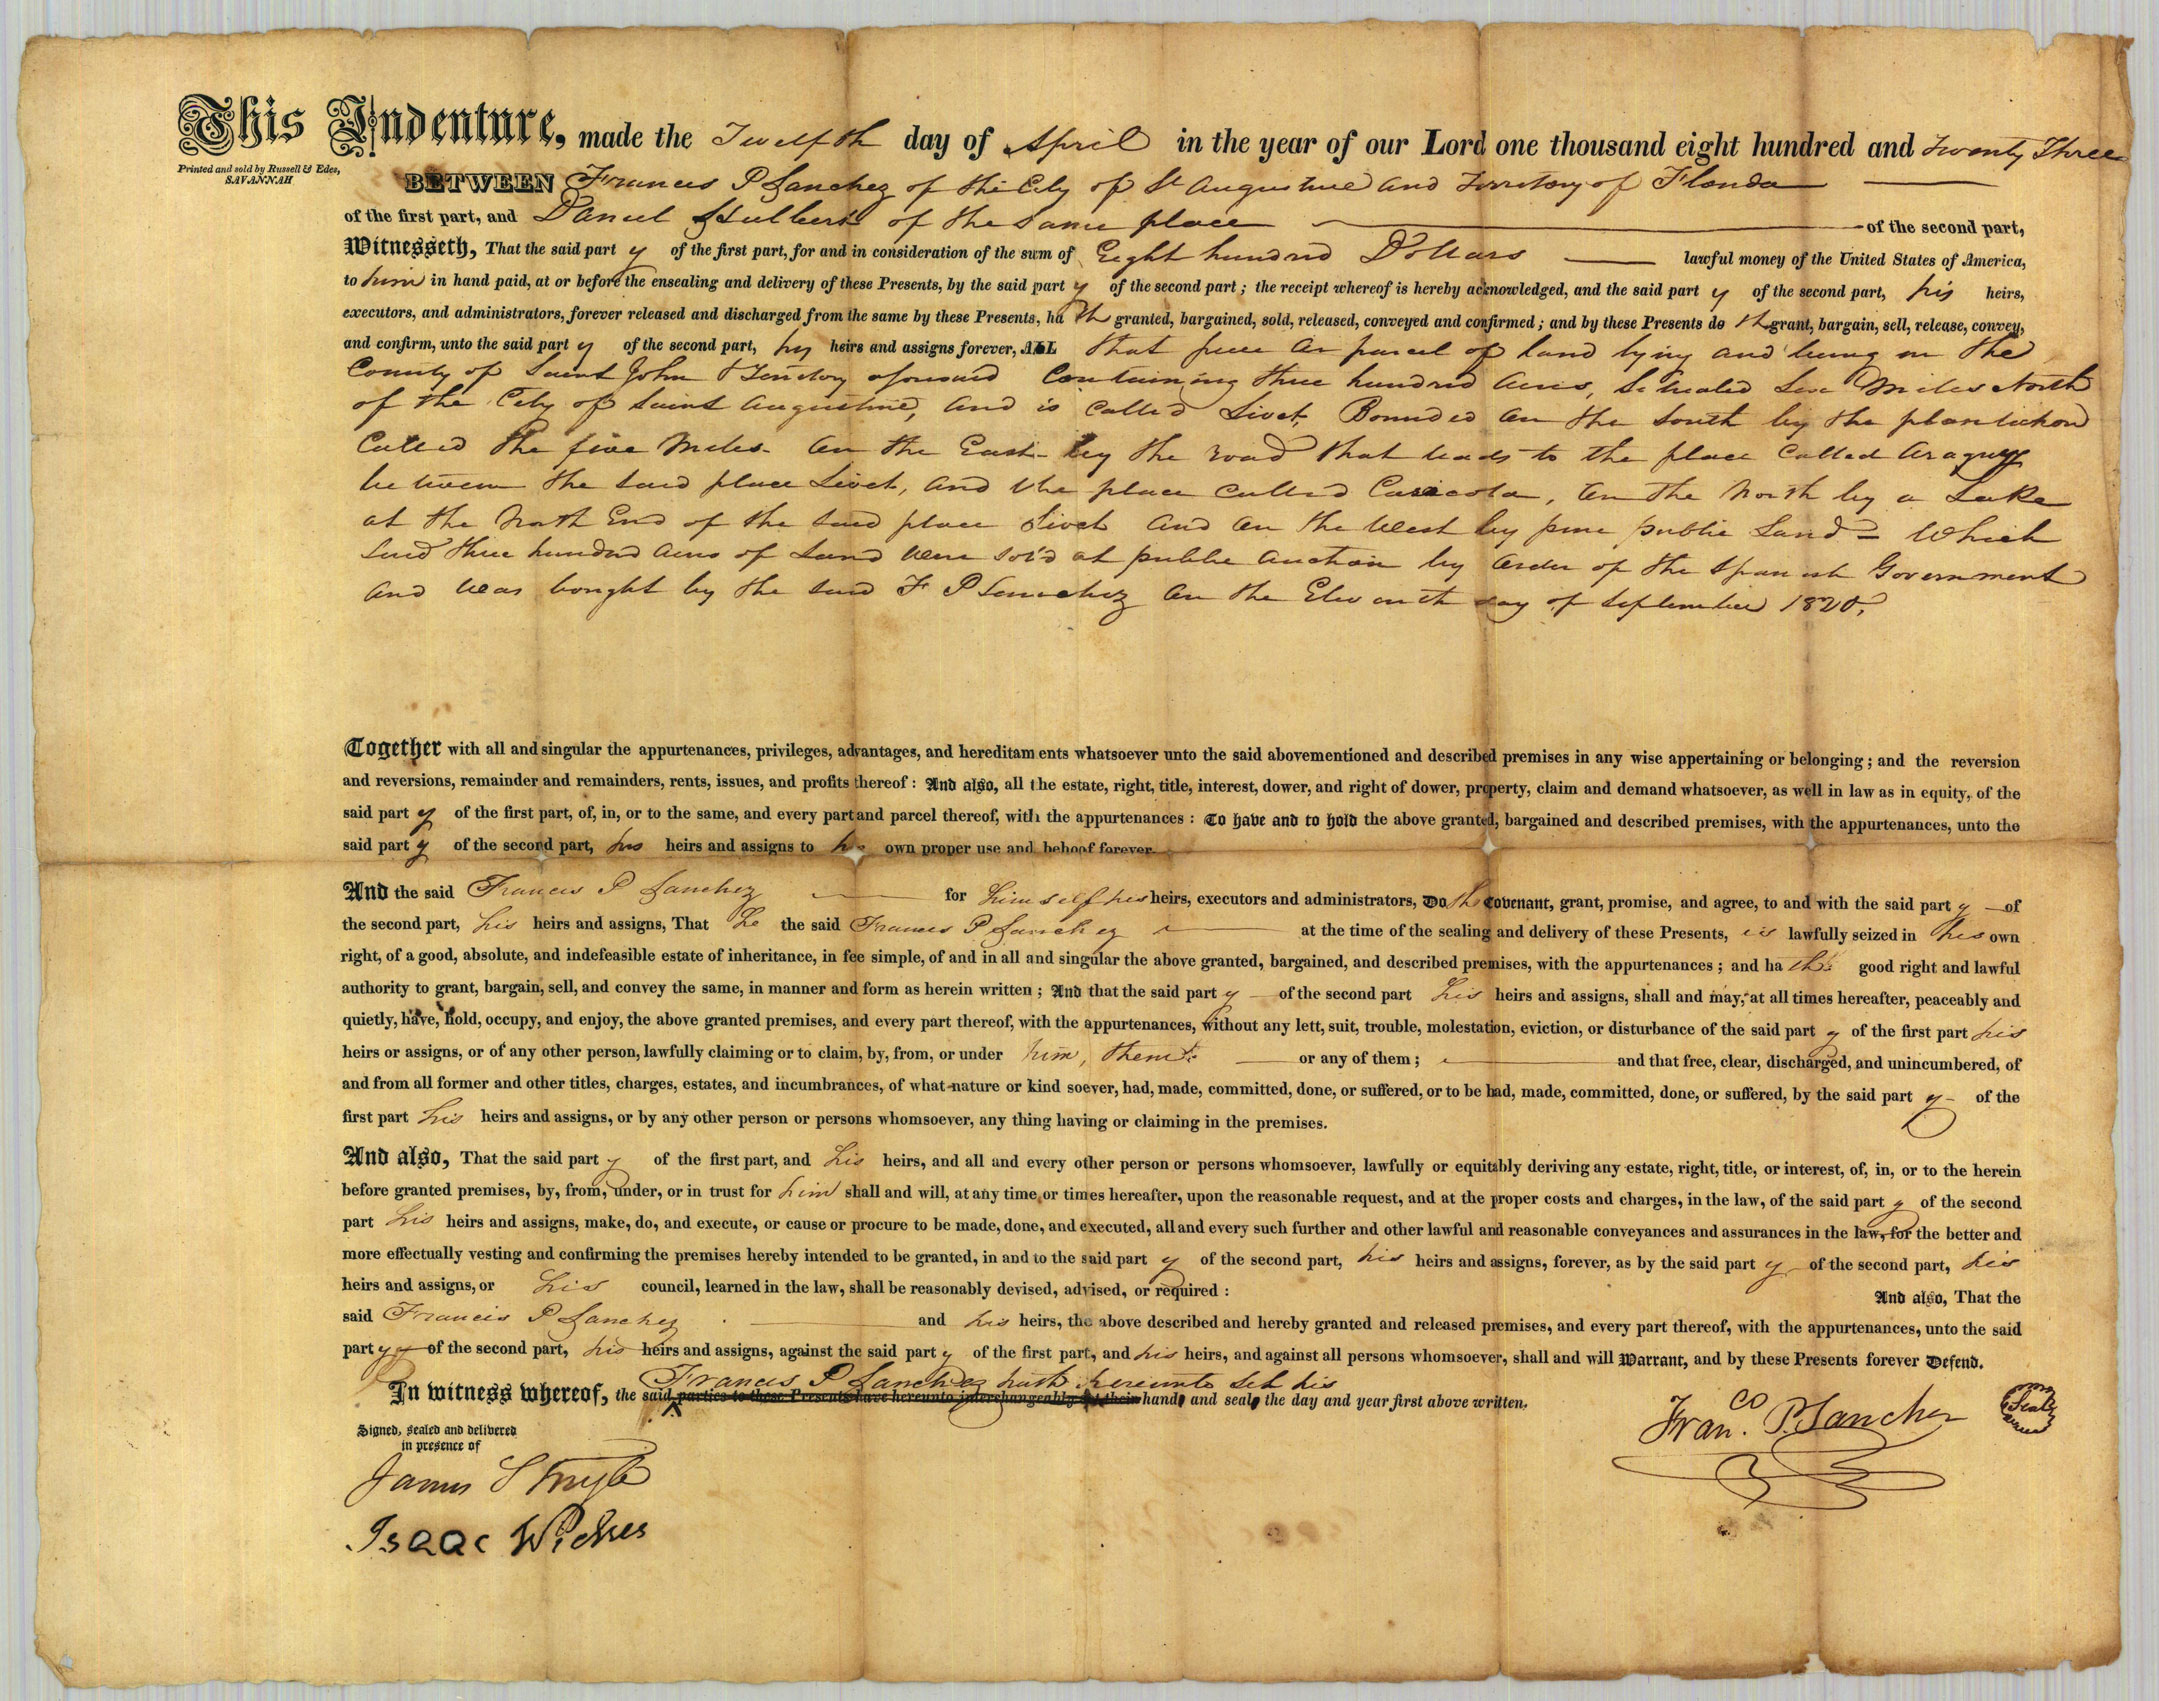 This Indenture, made the Twelfth day of April in the year of our Lord one thousand eight hundred and Twenty Three
Printed and sold by Russell & Edes,
SAVANNAH
BETWEEN Francis P Sanchez of the City of St Augustine and Territory of Florida
of the first part, and Daniel Hulbert of the same place of the second part,
Witnesseth, That the said part y of the first part, for and in consideration of the sum of Eight hundred Dollars lawful money of the United States of America,
to him in hand paid, at or before the ensealing and delivery of these Presents, by the said part y of the second part; the receipt whereof is hereby acknowledged, and the said part y of the second part, his heirs,
executors, and administrators, forever released and discharged from the same by these Presents, ha th granted, bargained, sold, released, conveyed and confirmed; and by these Presents do th grant, bargain, sell, release, convey,
and confirm, unto the said part y of the second part, his heirs and assigns forever, ALL that piece or parcel of land lying and being in the
County of Saint John & Territory aforesaid Containing three hundred acres, Situated Six Miles North
of the City of Saint Augustine, and is Called Bounded on the South by the plantation
Called the five Miles - on the East - by the road that leads to the place Called
between the said place and the place called on the North by a Lake
at the North End of the said place and on the West by pine public Land = Which
said three hundred acres of Land were sold at public auction by order of the Spanish Government
and was bought by the said F P Sanchez on the Eleventh day of September 1820,
Together with all and singular the appurtenances, privileges, advantages, and hereditaments whatsoever unto the said abovementioned and described premises in any wise appertaining or belonging; and the reversion
and reversions, remainder and remainders, rents, issues, and profits thereof: And also, all the estate, right, title, interest, dower, and right of dower, property, claim and demand whatsoever, as well in law as in equity, of the
said part y of the first part, of, in, or to the same, and every part and parcel thereof, with the appurtenances: To have and to hold the above granted, bargained and described premises, with the appurtenances, unto the
said part y of the second part, his heirs and assigns to his own proper use and behoof forever.
And the said Francis P Sanchez for himself his heirs, executors and administrators, Do th Covenant, grant, promise, and agree, to and with the said part y of
the second part, his heirs and assigns, That he the said Francis P Sanchez at the time of the sealing and delivery of these Presents, is lawfully seized in his own
right, of a good, absolute, and indefeasible estate of inheritance, in fee simple, of and in all and singular the above granted, bargained, and described premises, with the appurtenances; and ha th good right and lawful
authority to grant, bargain, sell, and convey the same, in manner and form as herein written; And that the said part y of the second part his heirs and assigns, shall and may, at all times hereafter, peaceably and
quietly, have, hold, occupy, and enjoy, the above granted premises, and every part thereof, with the appurtenances, without any lett, suit, trouble, molestation, eviction, or disturbance of the said part y of the first part his
heirs or assigns, or of any other person, lawfully claiming or to claim, by, from, or under him, them or any of them; and that free, clear, discharged, and unincumbered, of
and from all former and other titles, charges, estates, and incumbrances, of what nature or kind soever, had, made, committed, done, or suffered, or to be had, made, committed, done, or suffered, by the said part y of the
first part his heirs and assigns, or by any other person or persons whomsoever, any thing having or claiming in the premises.
And also, That the said part y of the first part, and his heirs, and all and every other person or persons whomsoever, lawfully or equitably deriving any estate, right, title, or interest, of, in, or to the herein
before granted premises, by, from, under, or in trust for him shall and will, at any time or times hereafter, upon the reasonable request, and at the proper costs and charges, in the law, of the said part y of the second
part his heirs and assigns, make, do, and execute, or cause or procure to be made, done, and executed, all and every such further and other lawful and reasonable conveyances and assurances in the law, for the better and
more effectually vesting and confirming the premises hereby intended to be granted, in and to the said part y of the second part, his heirs and assigns, forever, as by the said part y of the second part, his
heirs and assigns, or his council, learned in the law, shall be reasonably devised, advised, or required: And also, That the
said Francis P Sanchez and his heirs, the above described and hereby granted and released premises, and every part thereof, with the appurtenances, unto the said
part y of the second part, his heirs and assigns, against the said part y of the first part, and his heirs, and against all persons whomsoever, shall and will Warrant, and by these Presents forever Defend.
Francis P Sanchez hath hereunto set his
In witness whereof, the said parties to these Presents have hereunto interchangeably set their hand and seal the day and year first above written.
Signed, sealed and delivered
in presence of
Franco. P. Sanchez Seal
James
Isaac Wickes